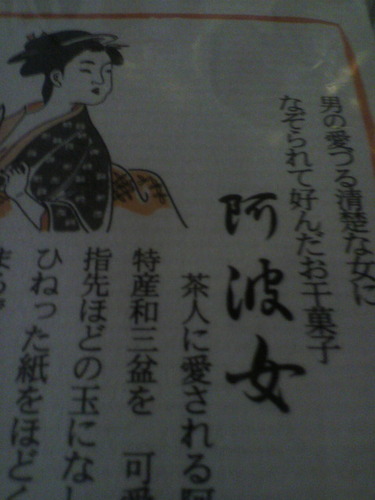 男の愛づる清楚な女に
なぞられて好んだお干菓子
阿波女
茶人に愛される阿
特産和三盆を 可愛
指先ほどの玉になし
ひねった紙をほどく